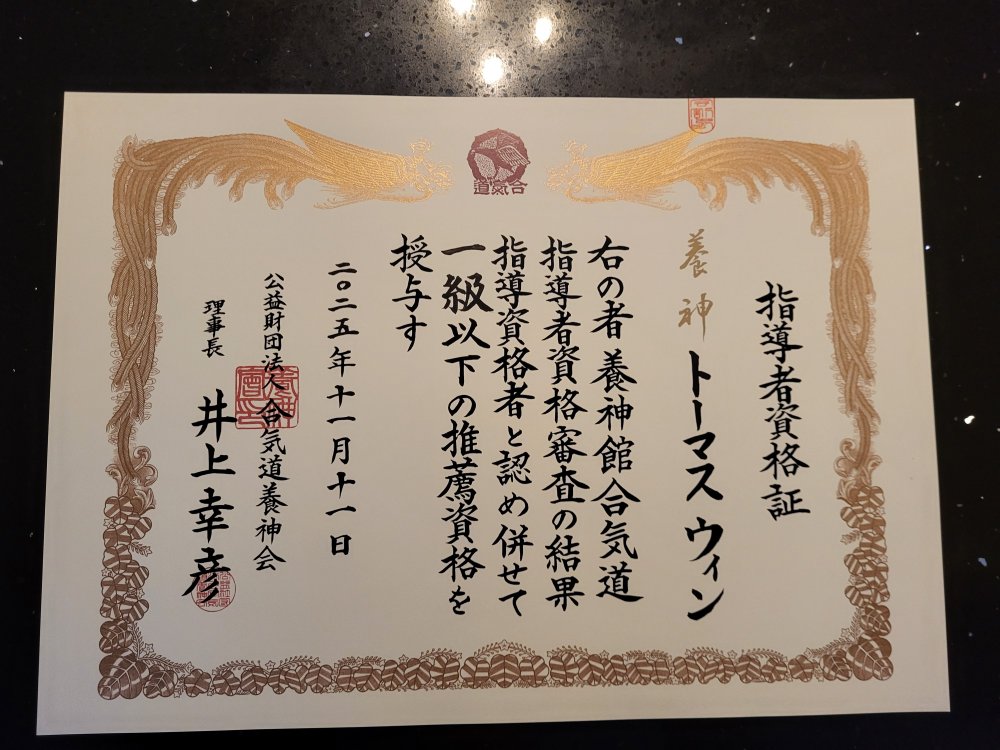 合氣道
指導者資格証
養神 トーマス ウィン
右の者 養神館合気道
指導者資格審査の結果
指導資格者と認め併せて
一級以下の推薦資格を
授与す
二〇二五年十一月十一日
公益財団法人合気道養神会
理事長 井上幸彦